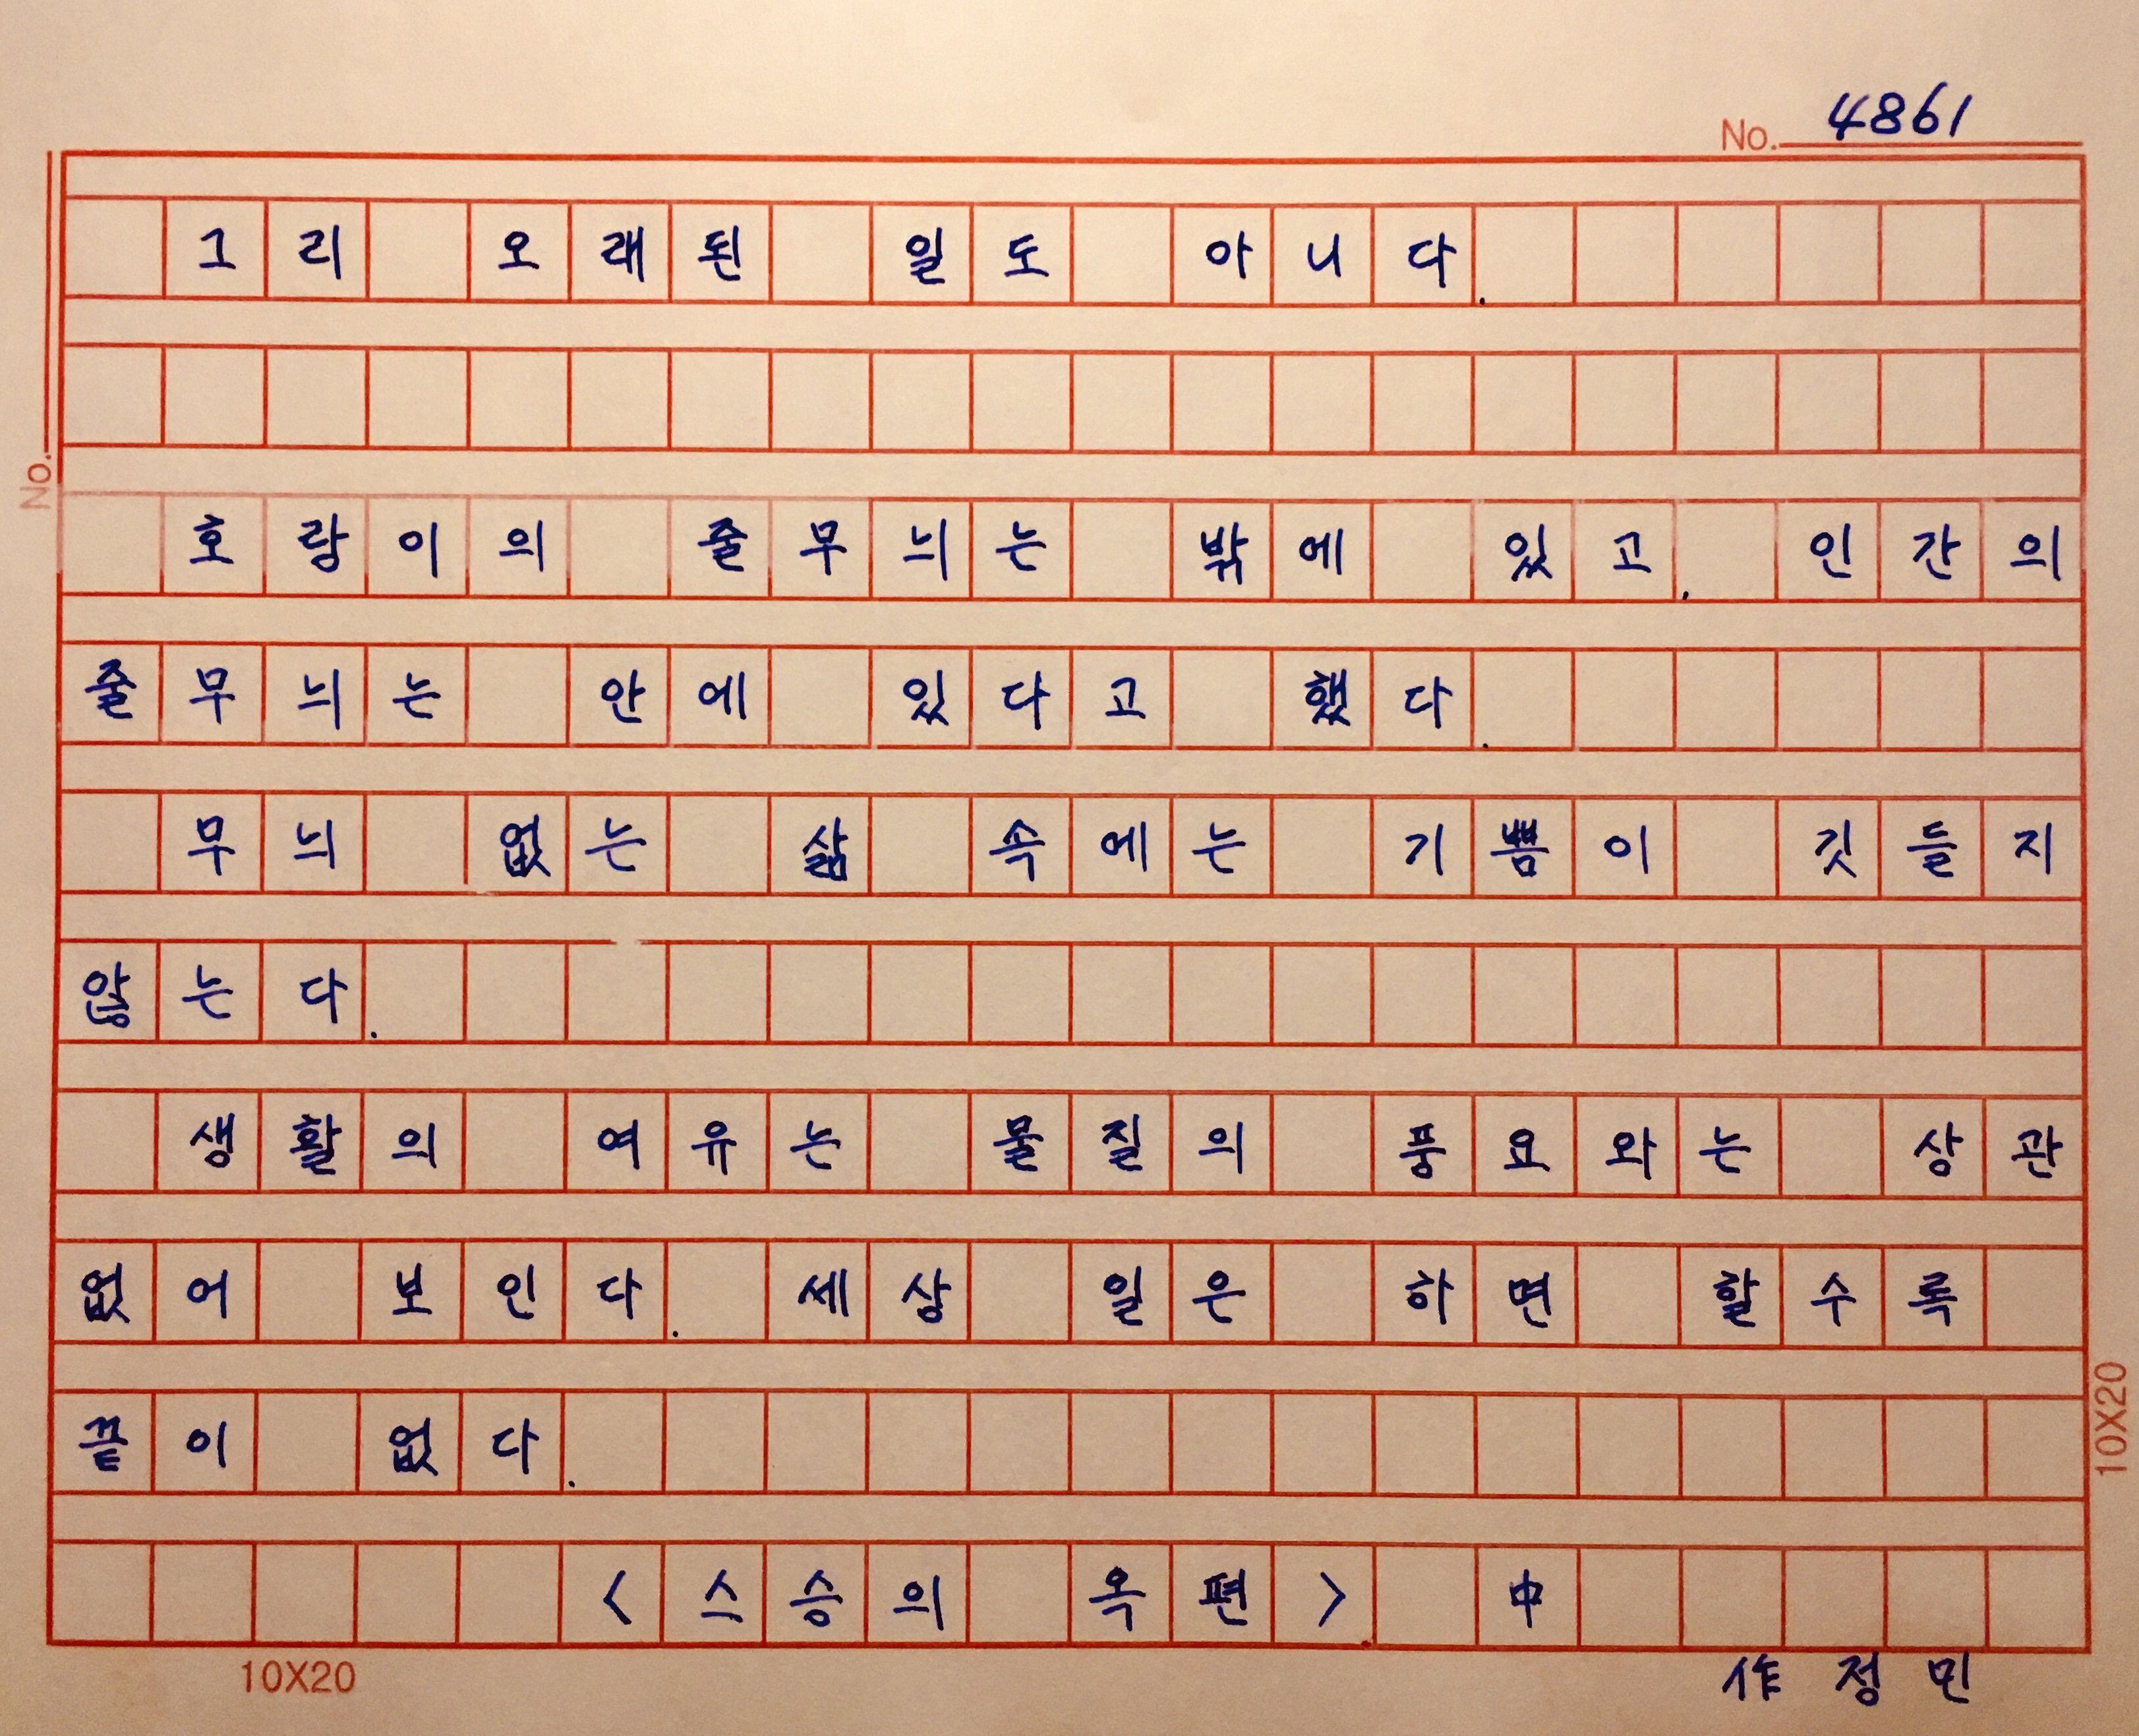 No. 4861
그리 오래된 일도 아니다.
호랑이의 줄무늬는 밖에 있고, 인간의
줄무늬는 안에 있다고 했다.
무늬 없는 삶 속에는 기쁨이 깃들지
않는다.
생활의 여유는 물질의 풍요와는 상관
없어 보인다. 세상 일은 하면 할수록
끝이 없다.
<스승의 옥편> 中
作 정민
No.
10X20
10X20